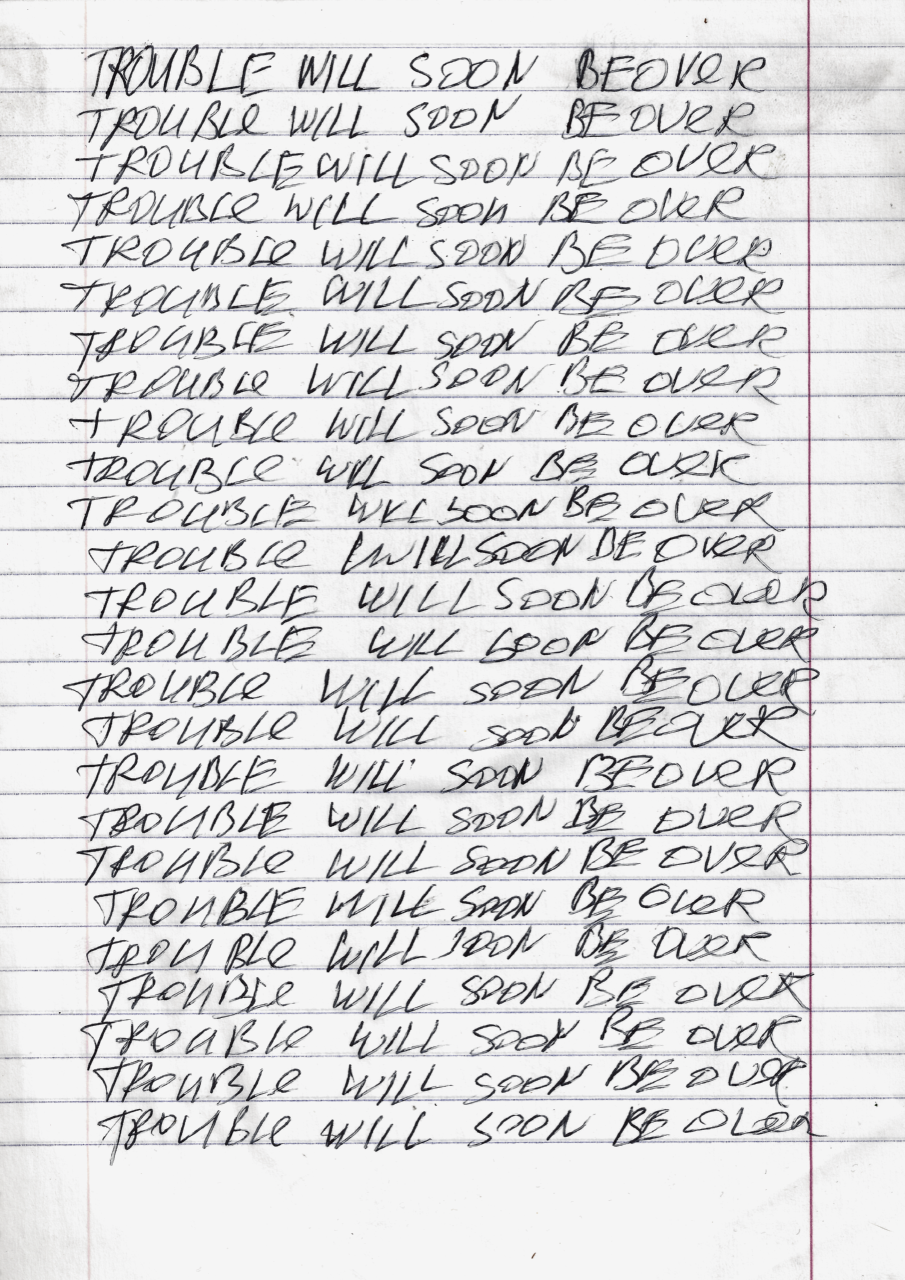 TROUBLE WILL SOON BE OVER
TROUBLE WILL SOON BE OVER
TROUBLE WILL SOON BE OVER
TROUBLE WILL SOON BE OVER
TROUBLE WILL SOON BE OVER
TROUBLE WILL SOON BE OVER
TROUBLE WILL SOON BE OVER
TROUBLE WILL SOON BE OVER
TROUBLE WILL SOON BE OVER
TROUBLE WILL SOON BE OVER
TROUBLE WILL SOON BE OVER
TROUBLE WILL SOON BE OVER
TROUBLE WILL SOON BE OVER
TROUBLE WILL SOON BE OVER
TROUBLE WILL SOON BE OVER
TROUBLE WILL SOON BE OVER
TROUBLE WILL SOON BE OVER
TROUBLE WILL SOON BE OVER
TROUBLE WILL SOON BE OVER
TROUBLE WILL SOON BE OVER
TROUBLE WILL SOON BE OVER
TROUBLE WILL SOON BE OVER
TROUBLE WILL SOON BE OVER
TROUBLE WILL SOON BE OVER
TROUBLE WILL SOON BE OVER